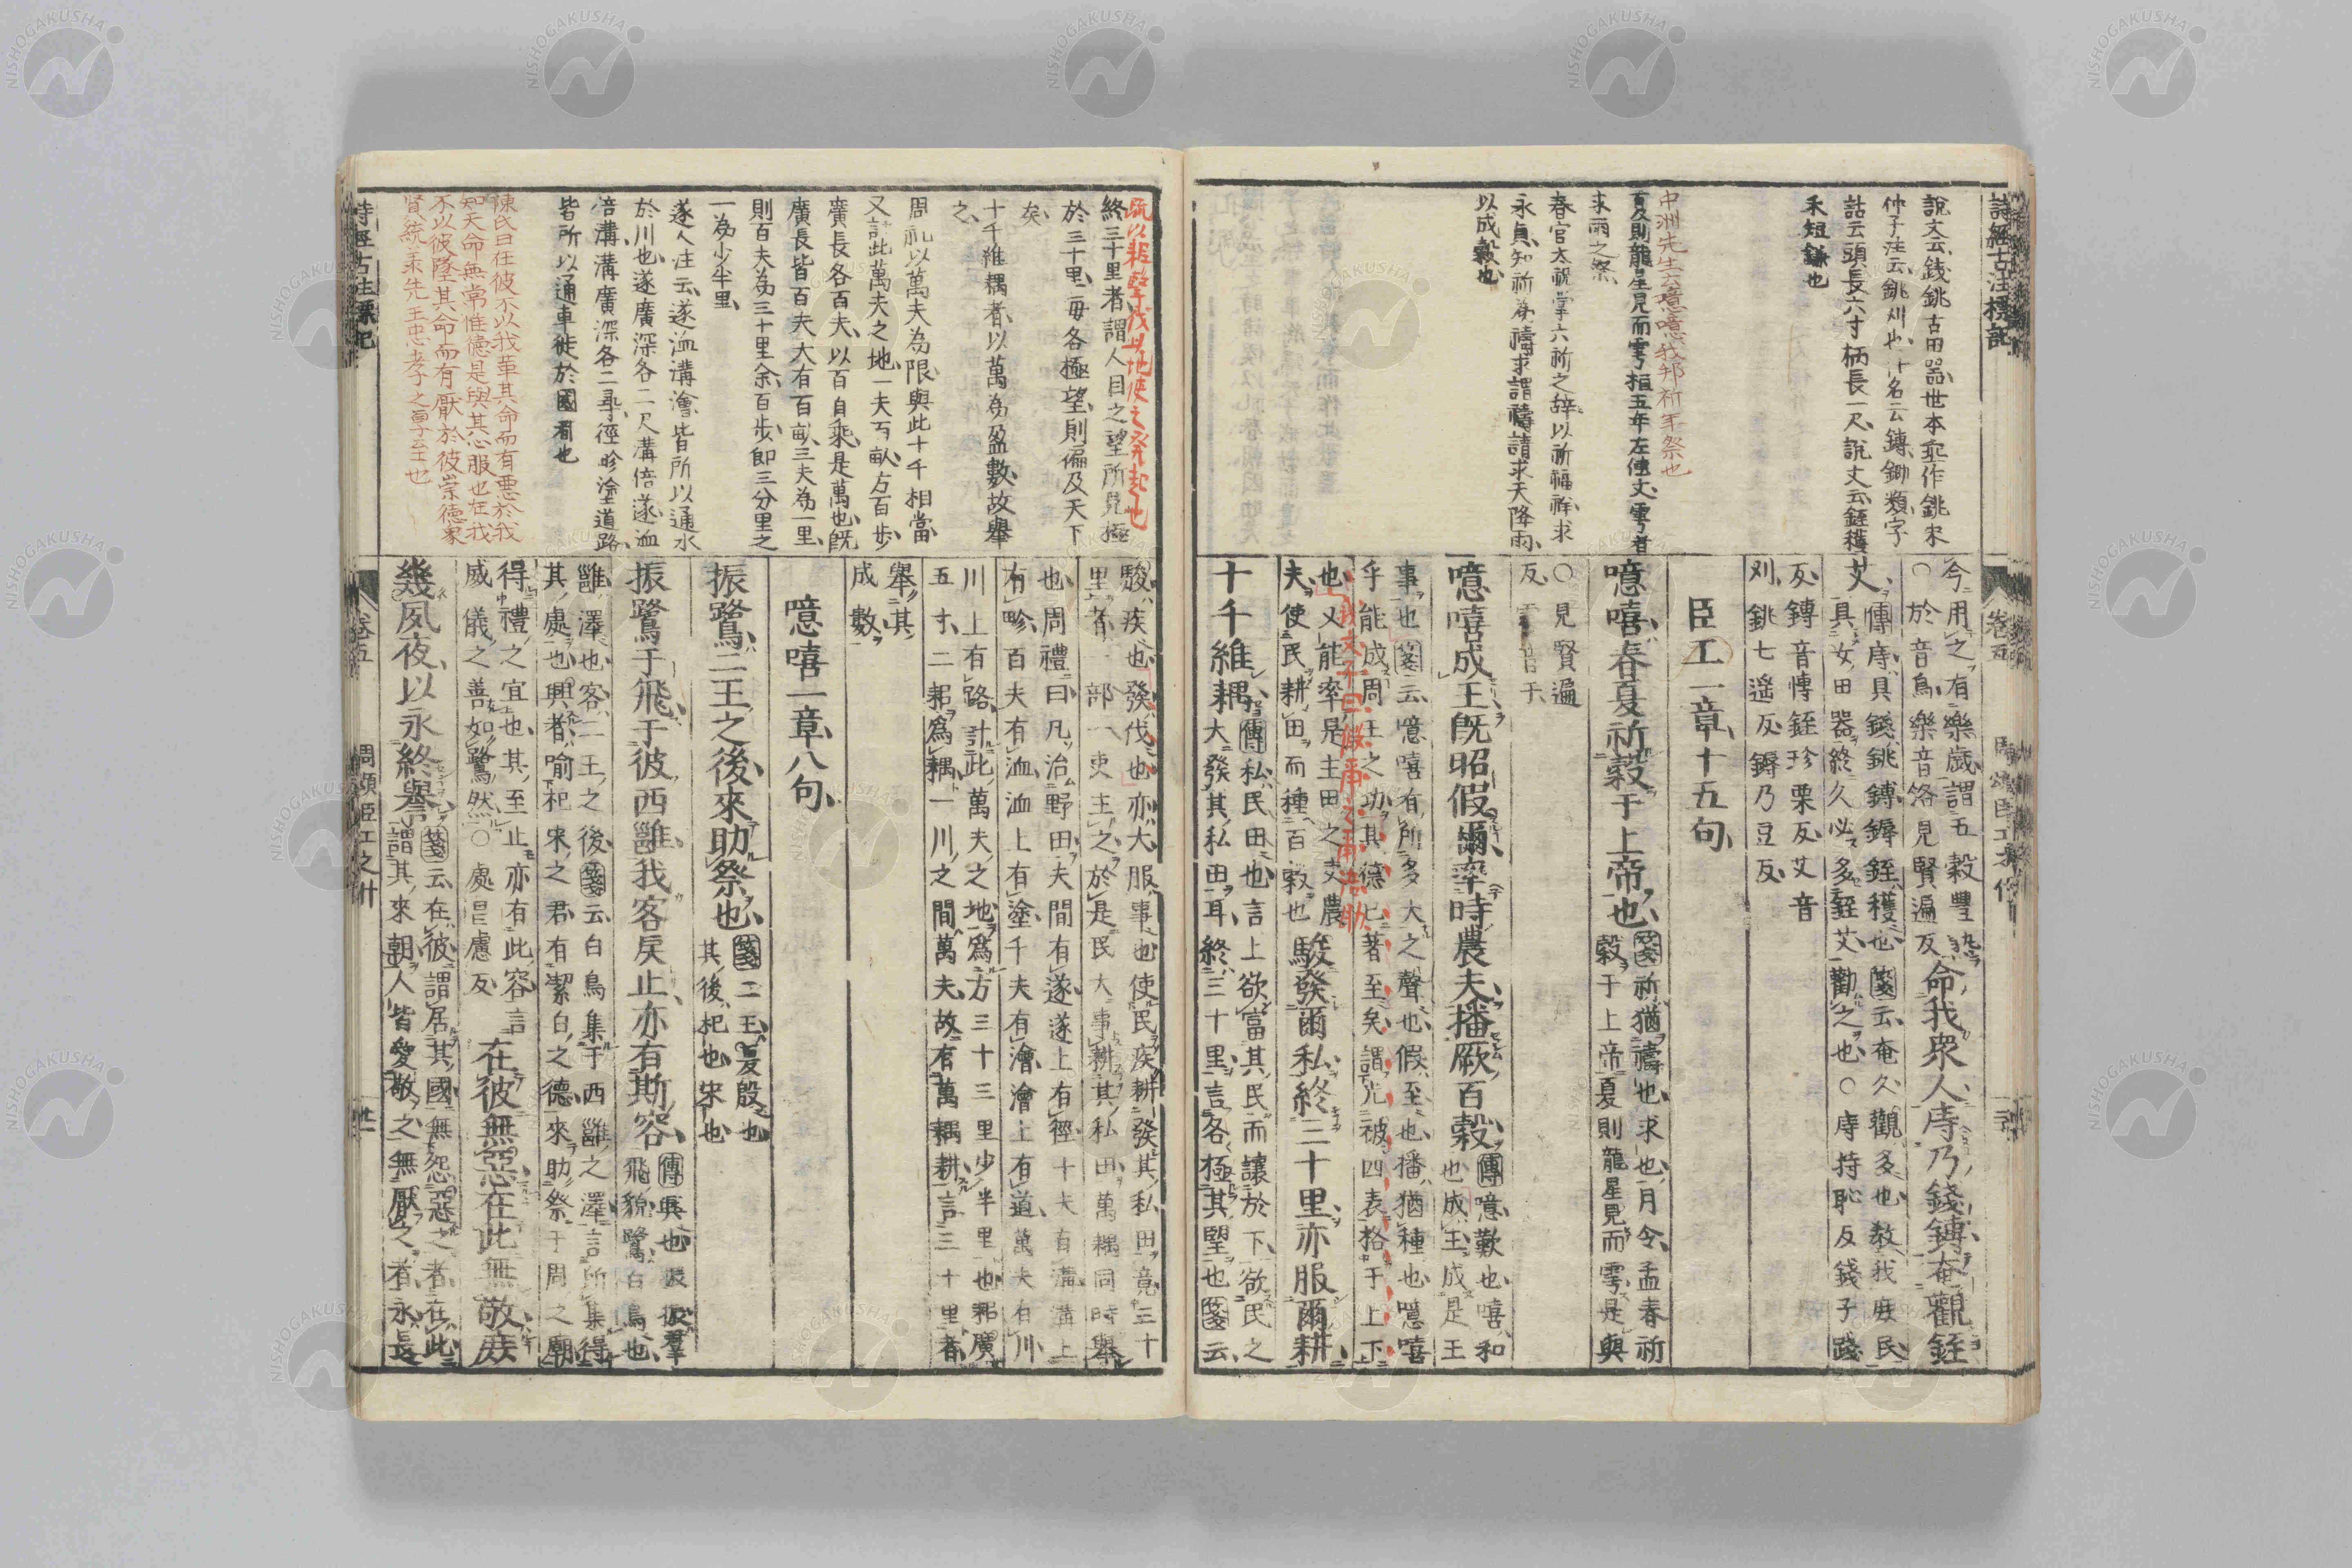 詩經古注標記
說文云錢銚古田器世本垂作銚宋
仲子注云銚刈也
詁云頭長六寸柄長一尺說文云銍穫
禾短鎌也
中洲先生云噫噫我邦祈年祭也
夏則龍星見而雩桓五年左傳文雩者
求雨之祭
春官大祝掌六祈之辭以祈福祥求
永貞知祈為禱求謂禱請求天降雨
以成穀也
今用之有樂歲謂五穀豐熟
○於音烏樂音洛見賢遍反
命我眾人庤乃錢鎛奄觀銍
艾
傳庤具錢銚鎛鎒銍穫也箋云奄久觀多也教我庶民
具女田器終久必多銍艾勸之也○庤持恥反錢子踐
反鎛音博銍珍栗反艾音
刈銚七遙反鎒乃豆反
臣工一章十五句
噫嘻春夏祈穀于上帝也
箋祈猶禱也求也月令孟春祈
穀于上帝夏則龍星見而雩是與
○見賢遍
反
噫嘻成王既昭假爾率時農夫播厥百穀
傳噫歎也嘻和
也成王成是王
事也箋云噫嘻有所多大之聲也假至也播猶種也噫嘻
乎能成周王之功其德已著至矣謂光被四表格于上下
也又能率是主田之吏農
夫使民耕田而種百穀也
駿發爾私終三十里亦服爾耕
十千維耦
傳私民田也言上欲富其民而讓於下欲民之
大發其私田耳終三十里言各極其望也箋云
卷五
終三十里者謂人目之望所見極
於三十里每各極望則徧及天下
矣
十千維耦者以萬為盈數故舉
之
周礼以萬夫為限與此十千相當
又計此萬夫之地一夫百畝方百步
廣長各百夫以百自乘是萬也既
廣長皆百夫夫有百畝三夫為一里
則百夫為三十里余百步即三分里之
一為少半里
遂人注云遂洫溝澮皆所以通水
於川也遂廣深各二尺溝倍遂洫
倍溝溝廣深各二尋徑畛塗道路
皆所以通車徒於國者也
陳氏曰在彼不以我革其命而有惡於我
知天命無常惟德是與其心服也在我
不以彼墜其命而有厭於彼崇德象
賢統承先王忠孝之事至也
駿疾也發伐也亦大服事也使民疾耕發其私田竟三十
里者一部一吏主之於是民大事耕其私田萬耦同時舉
也周禮曰凡治野田夫間有遂遂上有徑十夫有溝溝上
有畛百夫有洫洫上有塗千夫有澮澮上有道萬夫有川
川上有路計此萬夫之地為方三十三里少半里也耜廣
五寸二耜為耦一川之間萬夫故有萬耦耕言三十里者
舉其
成數
噫嘻一章八句
振鷺二王之後來助祭也
箋二王夏殷也
其後杞也宋也
振鷺于飛于彼西雝我客戾止亦有斯容
傳興也振振羣
飛貌鷺白鳥也
雝澤也客二王之後箋云白鳥集于西雝之澤言所集得
其處也興者喻杞宋之君有潔白之德來助祭于周之廟
得禮之宜也其至止亦有此容言
威儀之善如鷺然○處昌慮反
在彼無惡在此無斁庶
幾夙夜以永終譽
箋云在彼謂居其國無怨惡之者在此
謂其來朝人皆愛敬之無厭之者永長
詩經古注標記
卷五
周頌臣工之什